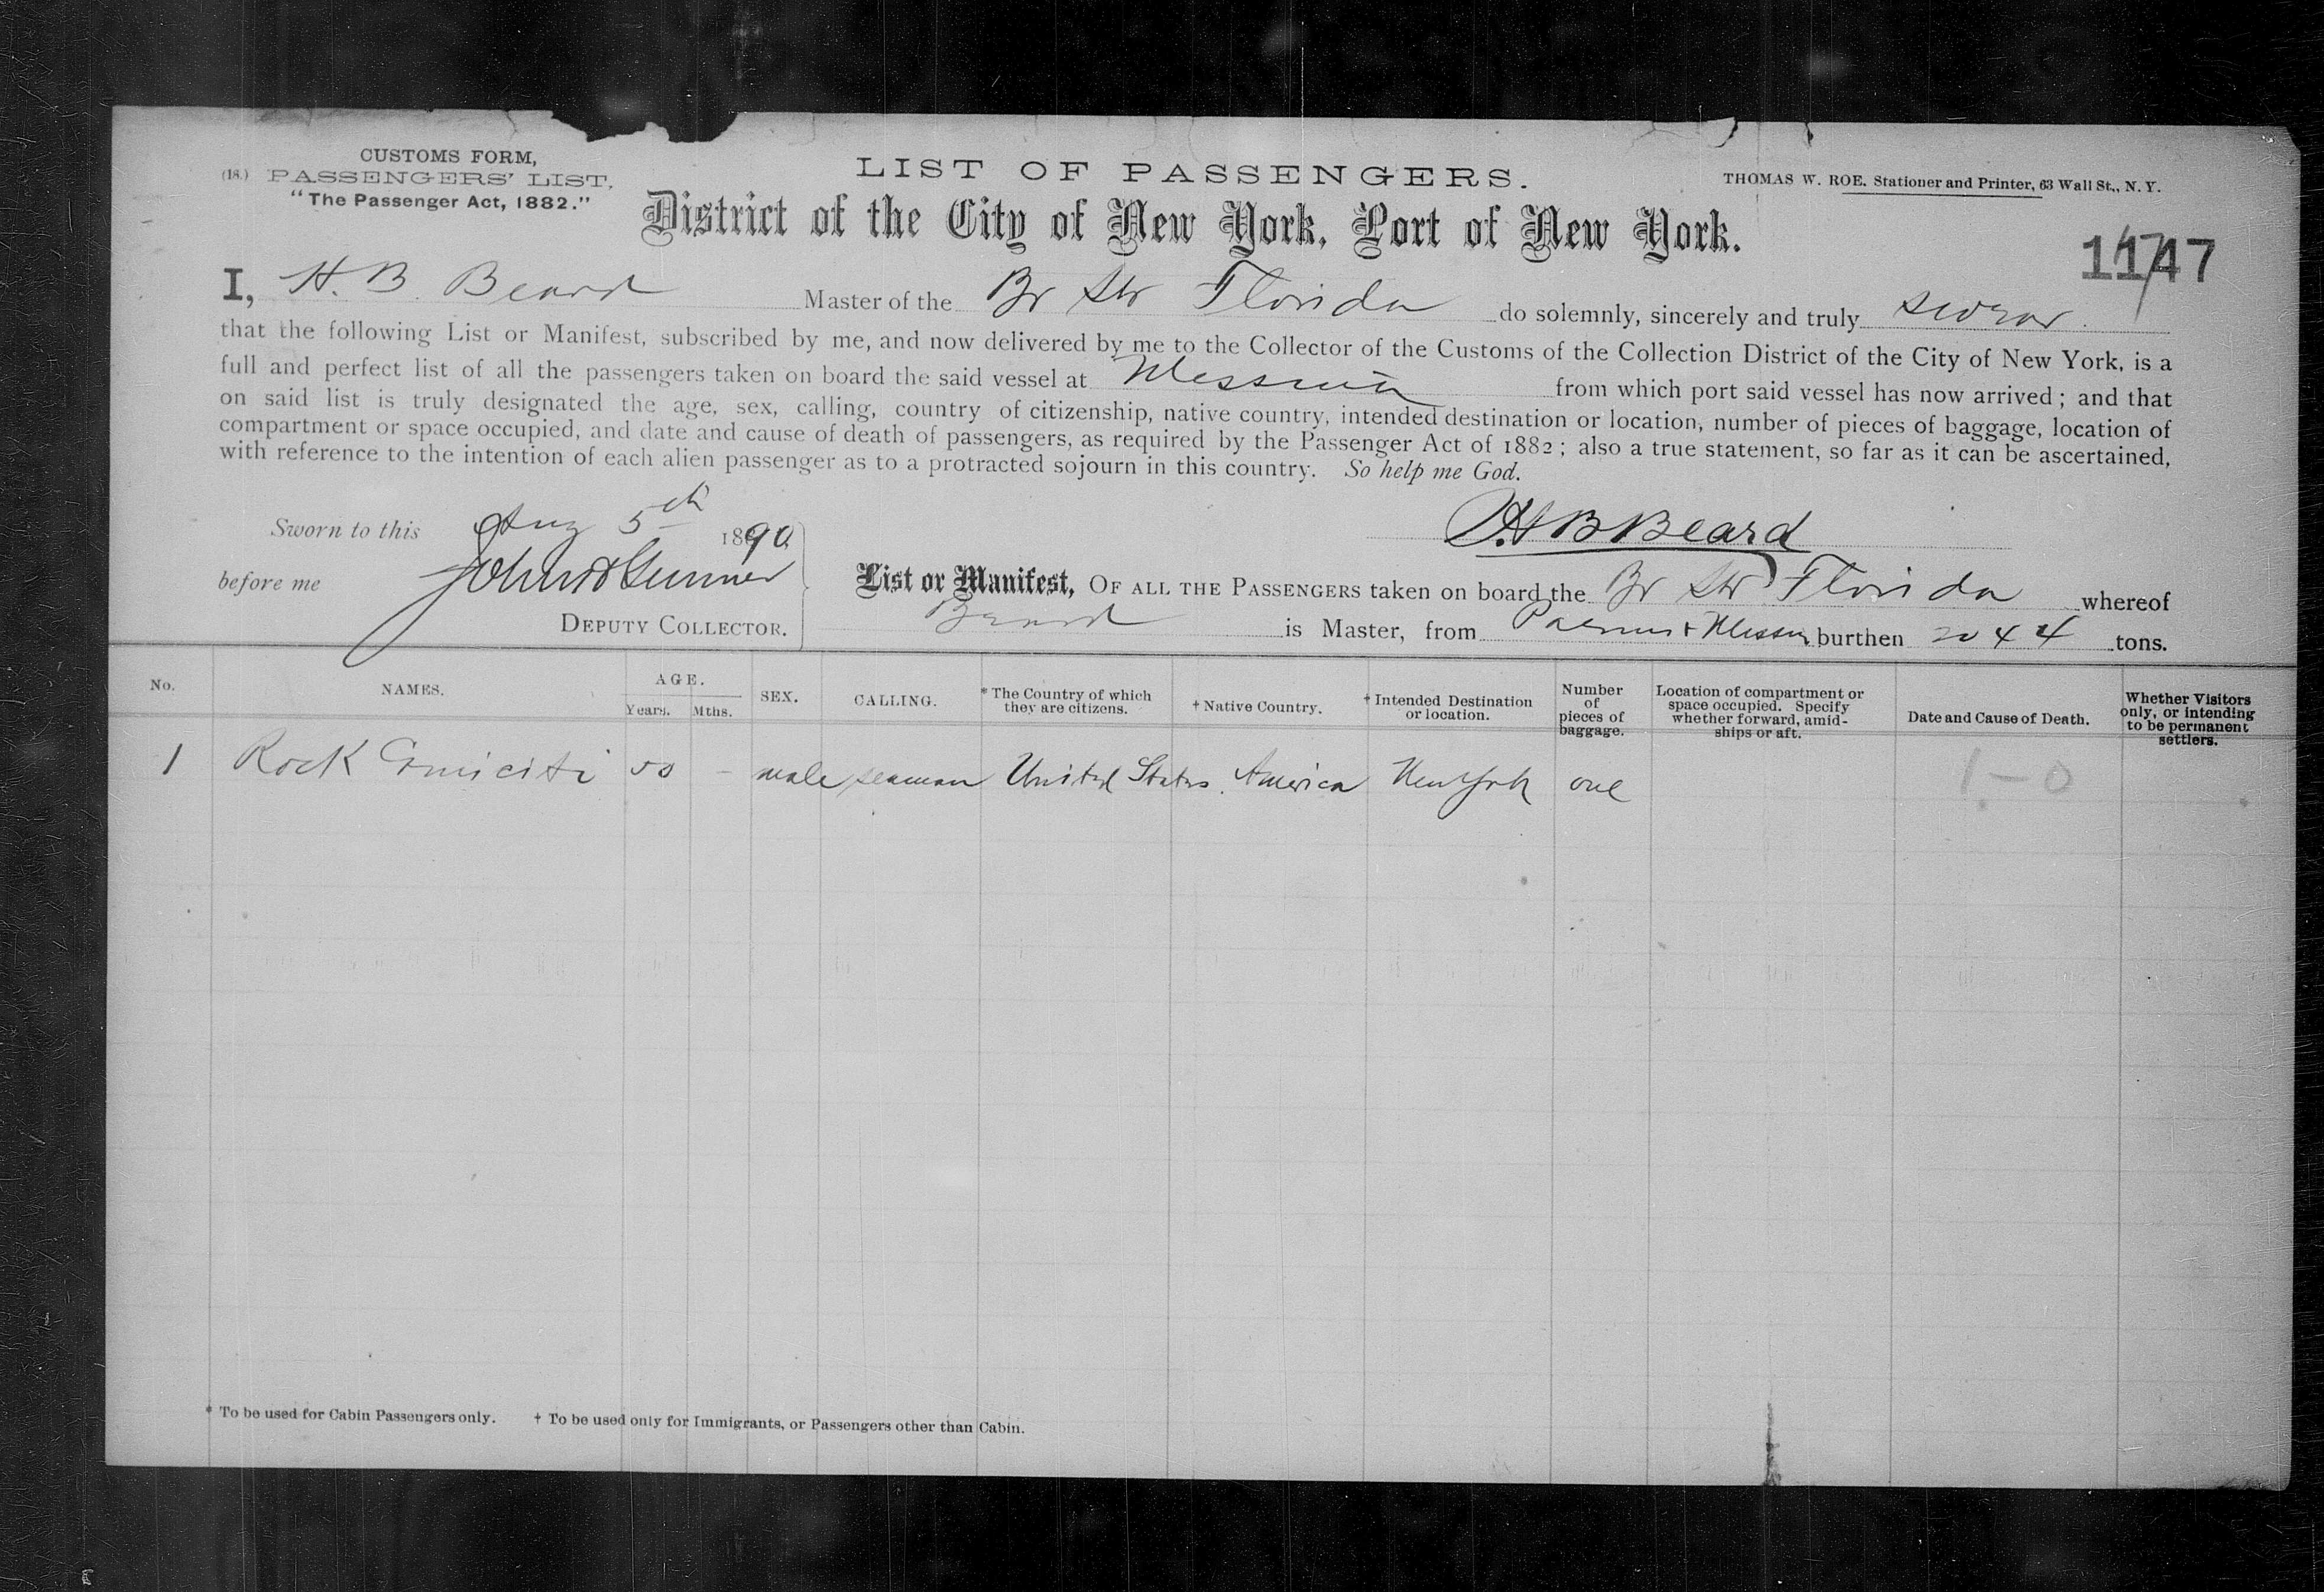 CUSTOMS FORM,
(18.) PASSENGERS' LIST,
"The Passenger Act, 1882."
LIST OF PASSENGERS.
THOMAS W. ROE, Stationer and Printer, 63 Wall St., N. Y.
District of the City of New York, Port of New York.
1147
I, H. B. Beard Master of the Br Str Florida do solemnly, sincerely and truly swear
that the following List or Manifest, subscribed by me, and now delivered by me to the Collector of the Customs of the Collection District of the City of New York, is a
full and perfect list of all the passengers taken on board the said vessel at Messina from which port said vessel has now arrived; and that
on said list is truly designated the age, sex, calling, country of citizenship, native country, intended destination or location, number of pieces of baggage, location of
compartment or space occupied, and date and cause of death of passengers, as required by the Passenger Act of 1882; also a true statement, so far as it can be ascertained,
with reference to the intention of each alien passenger as to a protracted sojourn in this country. So help me God.
Sworn to this Aug 5th 1890
H B Beard
before me
DEPUTY COLLECTOR.
List or Manifest, OF ALL THE PASSENGERS taken on board the Br Str Florida whereof
Beard is Master, from burthen 2044 tons.
No. NAMES. AGE. Years. Mths. SEX. CALLING. * The Country of which they are citizens. † Native Country. † Intended Destination or location. Number of pieces of baggage. Location of compartment or space occupied. Specify whether forward, amidships or aft. Date and Cause of Death. Whether Visitors only, or intending to be permanent settlers.
1 Rock 50 - male seaman United States America New York one 1-0
* To be used for Cabin Passengers only. † To be used only for Immigrants, or Passengers other than Cabin.